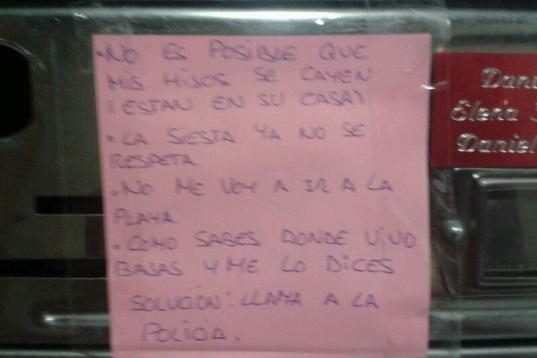 • NO ES POSIBLE QUE
MIS HIJOS SE CAYEN
(ESTAN EN SU CASA)
• LA SIESTA YA NO SE
RESPETA
• NO ME VOY A IR A LA
PLAYA
• COMO SABES DONDE VIVO
BAJAS Y ME LO DICES
SOLUCIÓN: LLAMA A LA
POLICIA.
Elena
Daniel